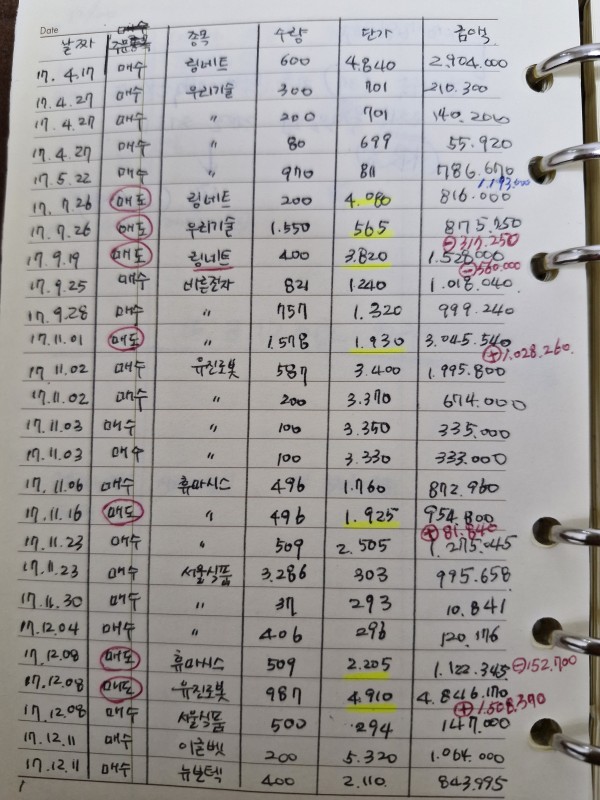 Date
날짜 매수 주문종목 종목 수량 단가 금액
17.4.17 매수 링네트 600 4.840 2.904.000
17.4.27 매수 우리기술 300 701 210.300
17.4.27 매수 〃 200 701 140.200
17.4.27 매수 〃 80 699 55.920
17.5.22 매수 〃 970 811 786.670
1.193.000
17.7.26 매도 링네트 200 4.080 816.000
17.7.26 매도 우리기술 1.550 565 875.750
⊖317.250
17.9.19 매도 링네트 400 3.820 1.528.000
⊖560.000
17.9.25 매수 바른전자 821 1.240 1.018.040
17.9.28 매수 〃 757 1.320 999.240
17.11.01 매도 〃 1.578 1.930 3.045.540
⊕1.028.260.
17.11.02 매수 유진로봇 587 3.400 1.995.800
17.11.02 매수 〃 200 3.370 674.000
17.11.03 매수 〃 100 3.350 335.000
17.11.03 매수 〃 100 3.330 333.000
17.11.06 매수 휴마시스 496 1.760 872.960
17.11.16 매도 〃 496 1.925 954.800
⊕81.840
17.11.23 매수 〃 509 2.505 1.275.045
17.11.23 매수 서울식품 3.286 303 995.658
17.11.30 매수 〃 37 293 10.841
17.12.04 매수 〃 406 296 120.176
17.12.08 매도 휴마시스 509 2.205 1.122.345 ⊖152.700
17.12.08 매도 유진로봇 987 4.910 4.846.170
⊕1.508.370
17.12.08 매수 서울식품 500 294 147.000
17.12.11 매수 이글벳 200 5.320 1.064.000
17.12.11 매수 뉴보텍 400 2.110 843.995